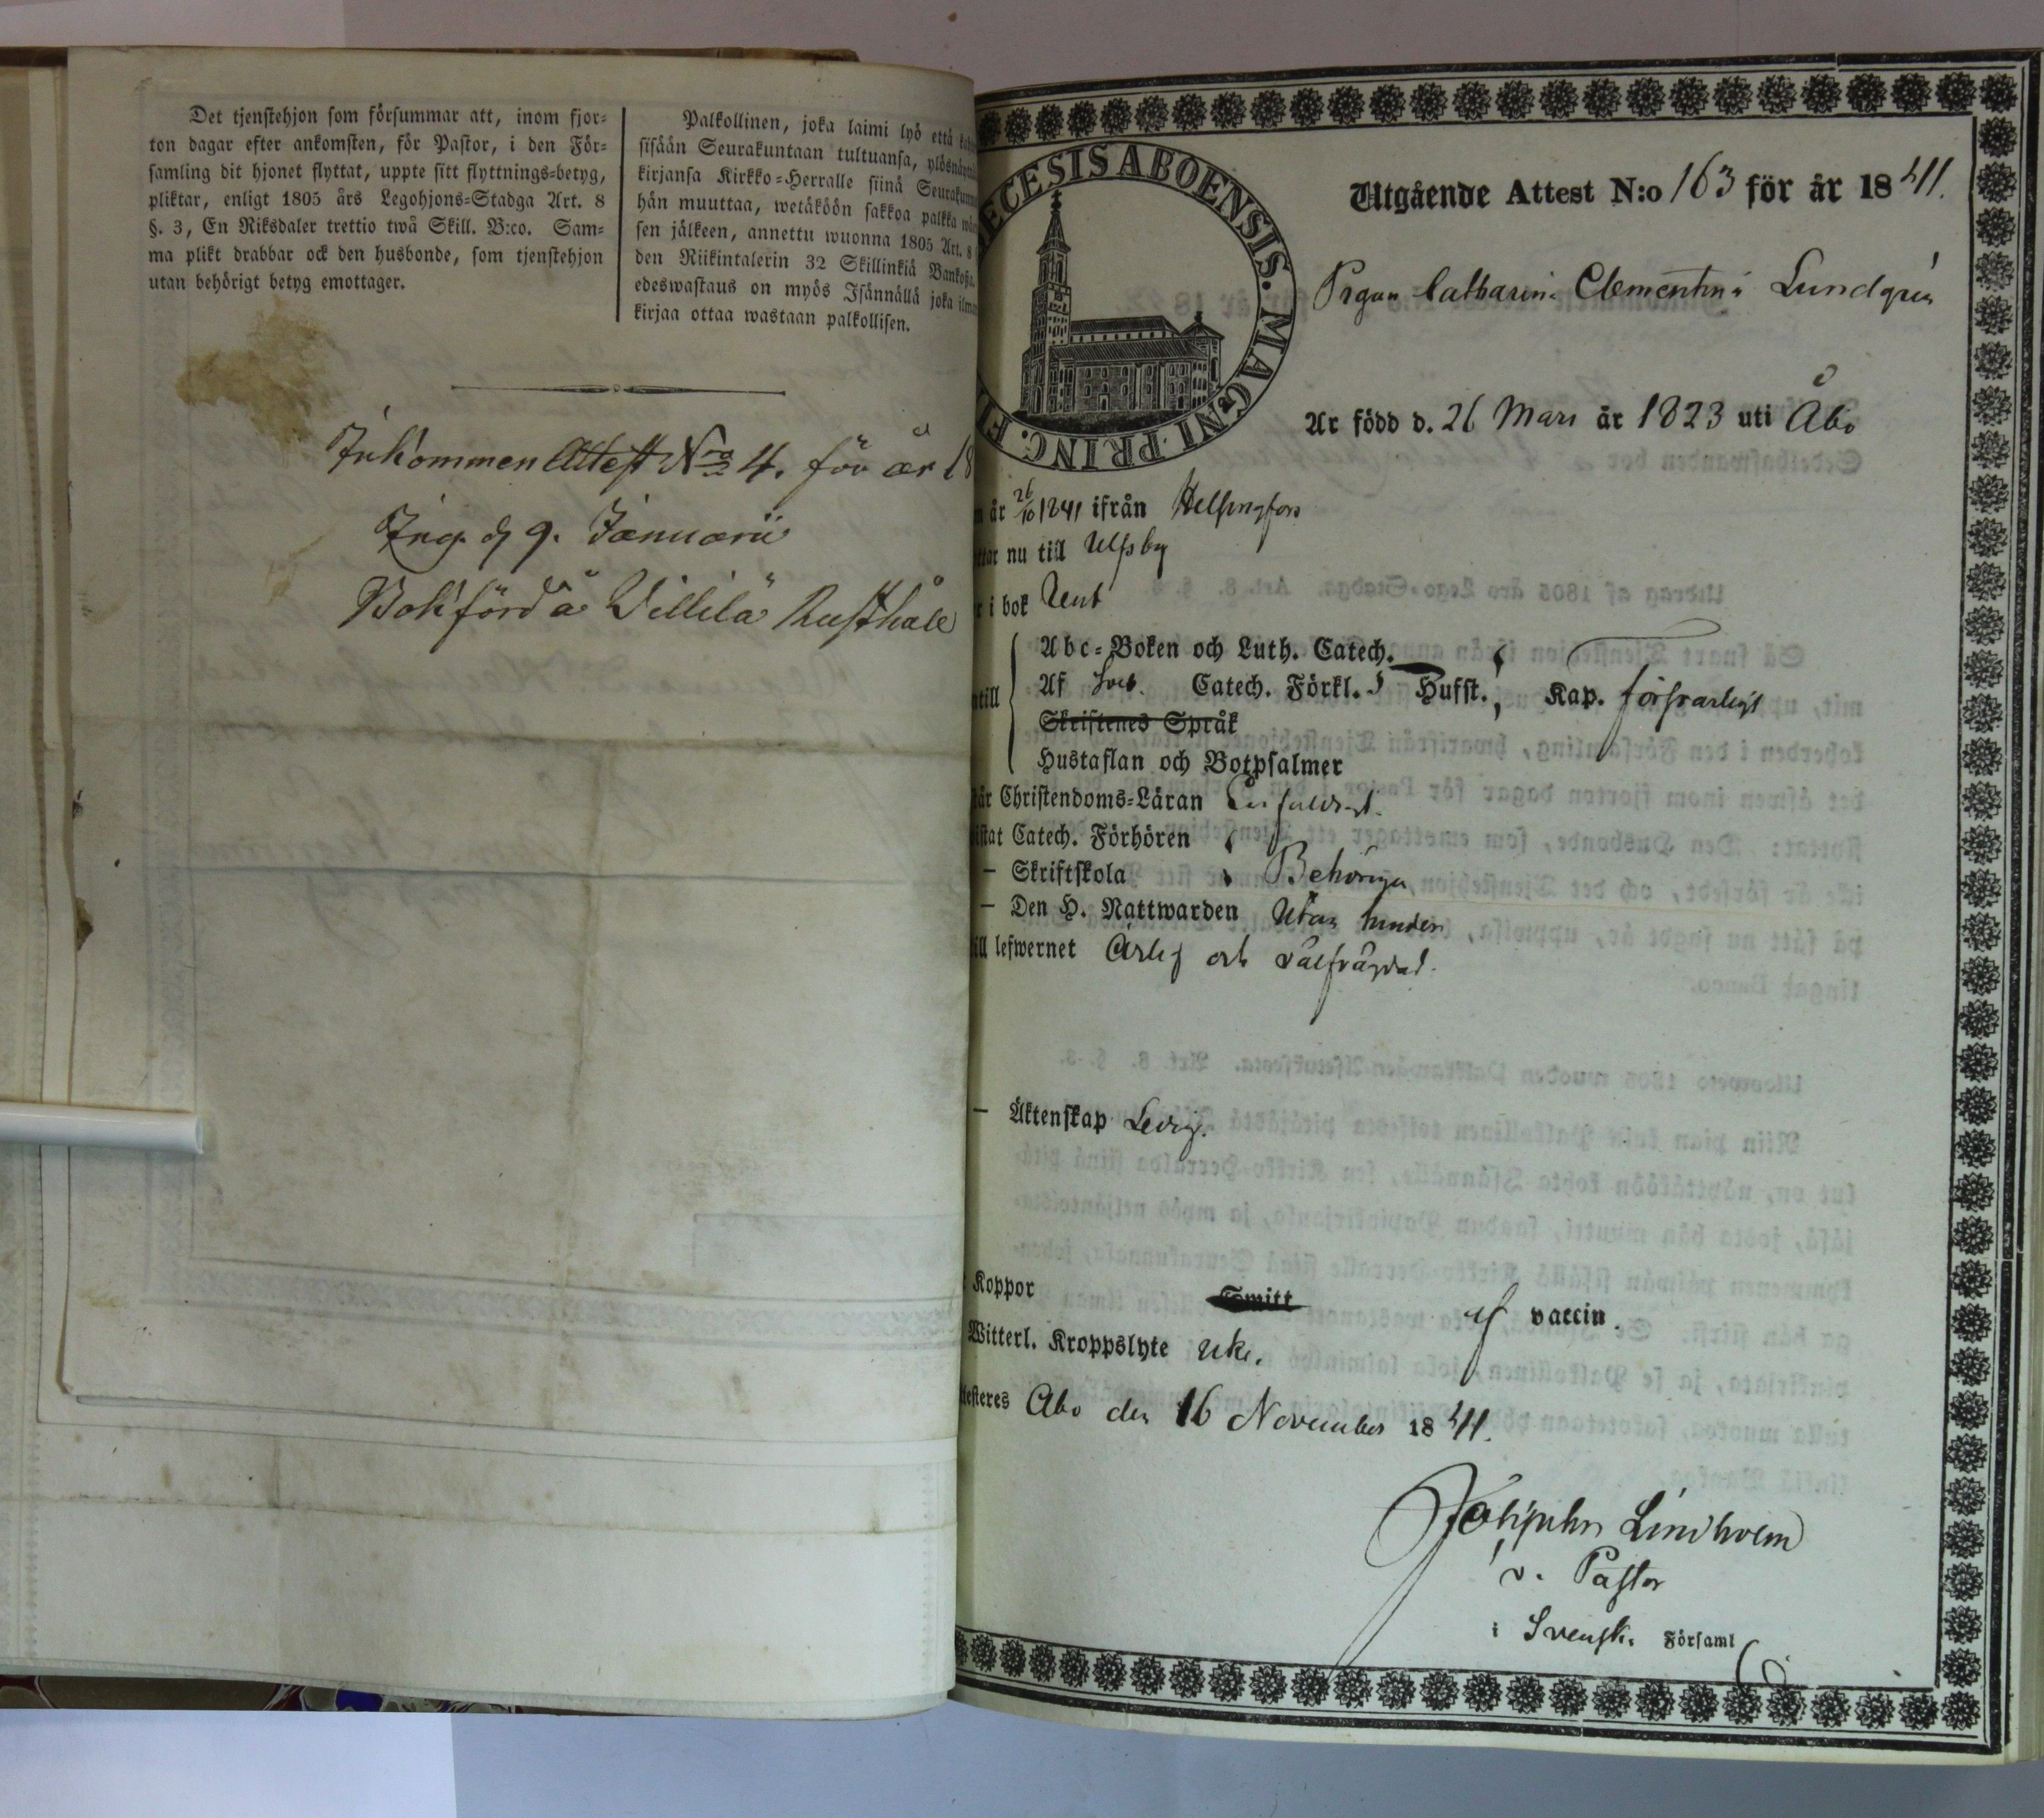 Det tjenstehjon som försummar att, inom fjor-
ton dagar efter ankomsten, för Pastor, i den För-
samling dit hjonet flyttat, uppte sitt flyttnings-betyg,
pliktar, enligt 1805 års Legohjons-Stadga Art. 8
§. 3, En Riksdaler trettio twå Skill. B:co. Sam-
ma plikt drabbar ock den husbonde, som tjenstehjon
utan behörigt betyg emottager.
Palkollinen, joka laimi lyö että
sisään Seurakuntaan tultuansa,
kirjansa Kirkko-Herralle siinä
hän muuttaa, wetäköön sakkoa palkka
sen jälkeen, annettu wuonna 1805 Art. 8
den Riikintalerin 32 Skillinkiä
edeswastaus on myös Isännällä joka
kirjaa ottaa wastaan palkollisen.
Inkommen Attest Nro 4. för år 18
Ing. d 9. Januarii
Bokförd å Villilä Rusthåll
ECESIS ABOENSIS. MAGNI PRINC. FI
Utgående Attest N:o 163 för år 1841.
Pigan Catharina Clementina Lundgrén
Är född d. 26 Mars år 1823 uti Åbo
år 26/10 1841 ifrån Helsingfors
nu till Ulfsby
i bok Rent
Abc-Boken och Luth. Catech.
Af Sveb. Catech. Förkl. Hufst. Kap. försvarligt
Skriftenes Språk
Hustaflan och Botpsalmer
Christendoms-Läran Enfaldigt.
Catech. Förhören
— Skriftskola Behörigen
— Den H. Nattwarden Utan hinder
lefwernet Ärlig och välfrägdad.
— Äktenskap Ledig.
Koppor Smitt af vaccin.
Witterl. Kroppslyte Icke.
Åbo den 16 November 1841.
Lindholm
v. Pastor
i Svenska Församl